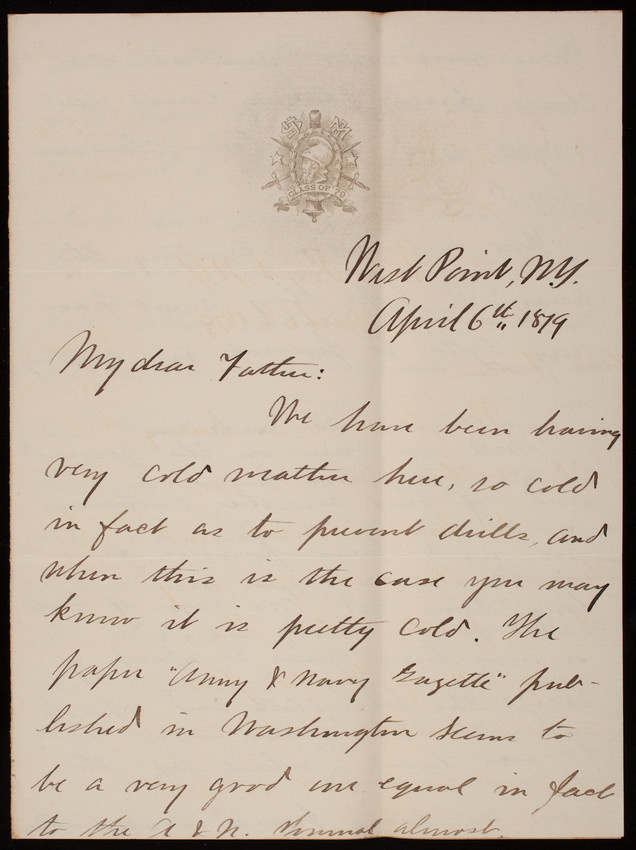 S M
CLASS OF '79
West Point, N.Y.
April 6th, 1879
My dear Father:
We have been having
very cold weather here, so cold
in fact as to prevent drills, and
when this is the case you may
know it is pretty cold. The
paper "Army & Navy Gazette" pub-
lished in Washington seems to
be a very good one equal in fact
to the A & N. Journal almost.